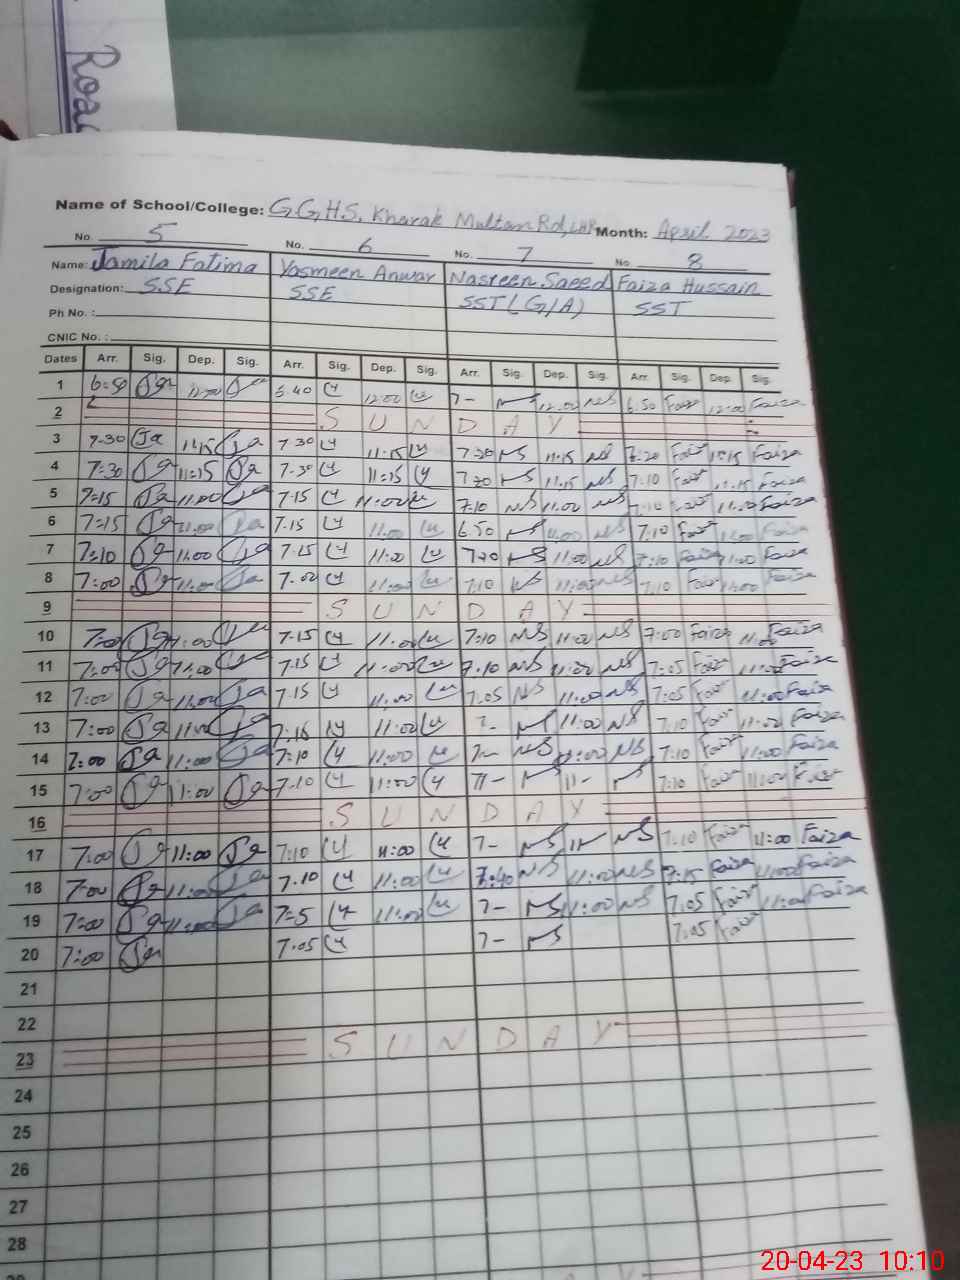 Roa
Name of School/College: G.G.H.S. Kharak Multan Rd, LHR Month: April 2023
No. 5 No. 6 No. 7 No. 8
Name: Jamila Fatima Yasmeen Anwar Nasreen Saeed Faiza Hussain
Designation: SSE SSE SST (G/A) SST
Ph No. :
CNIC No. :
Dates Arr. Sig. Dep. Sig. Arr. Sig. Dep. Sig. Arr. Sig. Dep. Sig. Arr. Sig. Dep. Sig.
1 12:00 7- NS 12.00 NS 6.50 Faiza 12:00 Faiza
2 SUNDAY
3 7-30 Ja 11:15 Ja 7.30 11:15 7.20 NS 11.15 NS Faiza 11:15 Faiza
4 7:30 Ja 11:15 Ja 7.30 11:15 7.20 NS 11.15 NS 7.10 Faiza 11.15 Faiza
5 7=15 Ja 11.00 Ja 7.15 11:00 7.10 NS 11.00 NS 7.10 Faiza 11.00 Faiza
6 7=15 Ja 11:00 Ja 7.15 11:00 6.50 NS 11:00 NS 7.10 Faiza 11:00 Faiza
7 7=10 Ja 11.00 Ja 7.15 11:00 NS 11:00 NS 7:10 Faiza 11:00 Faiza
8 7:00 Ja 11:00 Ja 7.00 11:00 7.10 NS 11:00 NS 7.10 Faiza 11:00 Faiza
9 SUNDAY
10 7:00 Ja 11:00 Ja 7.15 11:00 7:10 NS 11:00 NS 7:00 Faiza 11:00 Faiza
11 7:00 Ja 11:00 Ja 7.15 11:00 7.10 NS 11:00 NS 7:05 Faiza 11:00 Faiza
12 7:00 Ja 11:00 Ja 7.15 11:00 7.05 NS 11:00 NS 7:05 Faiza 11:00 Faiza
13 7:00 Ja 11:00 Ja 7.15 11:00 7- NS 11:00 NS 7:10 Faiza 11:00 Faiza
14 7:00 Ja 11:00 Ja 7:10 11:00 7- NS 11:00 NS 7:10 Faiza 11:00 Faiza
15 7:00 Ja 11:00 Ja 7.10 11:00 NS 11- NS 7:10 Faiza 11:00 Faiza
16 SUNDAY
17 7:00 Ja 11:00 Ja 7:10 11:00 7- NS NS 7:10 Faiza 11:00 Faiza
18 7:00 Ja 11:00 Ja 7.10 11:00 7:40 NS 11:00 NS 7:15 Faiza 11:00 Faiza
19 7:00 Ja 11:00 Ja 7=5 11:00 7- NS 11:00 NS 7.05 Faiza 11:00 Faiza
20 7:00 Ja 7.05 7- NS 7:05 Faiza
21
22
23 SUNDAY
24
25
26
27
28
20-04-23 10:10